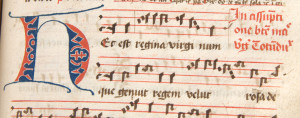 In assūpti
one btē ma
Hec est regina virgi num
que genuit regem velut rosa de